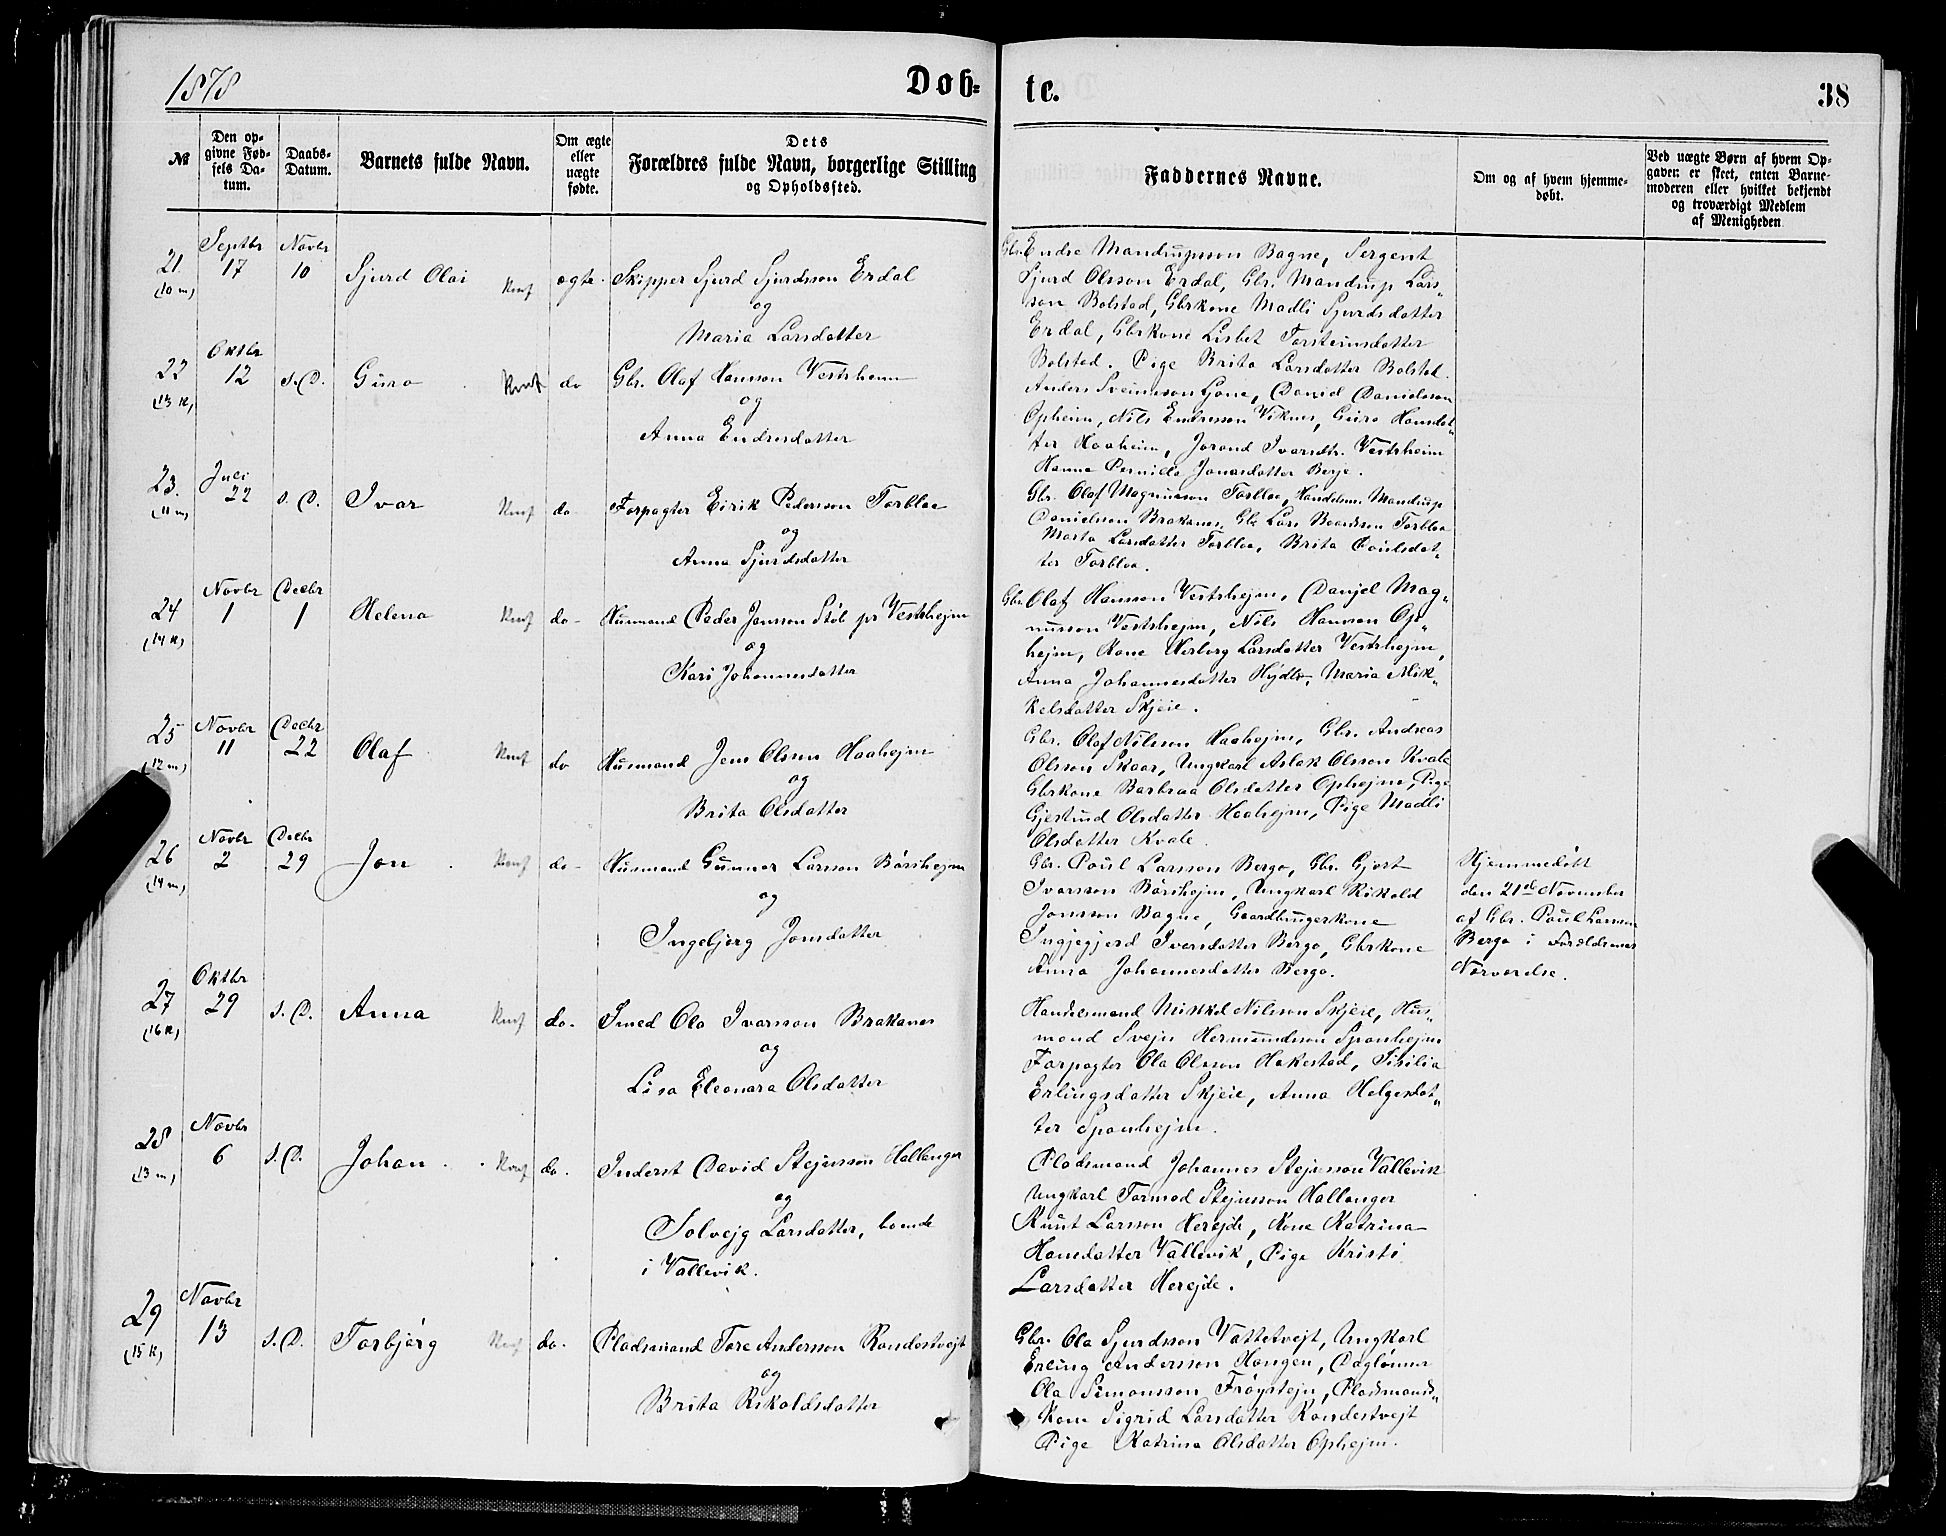 1878
Døb-
te.
38
№
Den op-
givne Fød-
sels Da-
tum.
Daabs-
Datum.
Barnets fulde Navn.
Om ægte
eller
uægte
fødte.
Dets
Forældres fulde Navn, borgerlige Stilling
og Opholdssted.
Faddernes Navne.
Om og af hvem hjemme-
døbt.
Ved uægte Børn af hvem Op-
gaven er skeet, enten Barne-
moderen eller hvilket bekjendt
og troværdigt Medlem
af Menigheden
21.
(10 m)
Septbr
17
Novbr
10
Sjurd Olai
ægte.
Skipper Sjurd Sjurdsson Erdal
og
Maria Larsdatter
Gbr. Endre Mandrupsson Bagne, Sergent
Sjurd Olsson Erdal, Gbr. Mandrup Lars„
son Bolstad, Gbrkone Madli Sjurdsdatter
Erdal, Gbrkone Lisbet Torsteinsdatter
Bolstad. Pige Brita Larsdatter Bolstad.
22
(13 K)
Oktbr
12
s. D.
Guro
do
Gbr. Olaf Hansson Vestrheim
og
Anna Endresdatter
Anders Sveinsson Lione, David Danielsson
Opheim, Nils Endresson Viknes, Guro Hansdat„
ter Haaheim, Jorand Ivarsdtr. Vestrheim
Hanna Pernille Jonasdatter Berje.
23.
(11 m)
Juli
22
s. D.
Ivar
do
Forpagter Eirik Pedersson Torbloe
og
Anna Sjurdsdatter
Gbr. Olaf Magnusson Torbloe, Handelsm. Mandrup
Danielson Brakanes, Gbr Lars Baardson Torbloe
Marta Larsdatter Torbloe, Brita Poulsdat„
ter Torbloe.
24
(14 K)
Novbr
1
Decbr
1
Helena
do-
Husmand Peder Jonsson Støl pr Vestrhejm
og
Kari Johannesdatter
Gbr. Olaf Hansson Vestrhejm, Danjel Mag„
nusson Vestrhejm, Nils Hansson Op„
hejm, Kone Herborg Larsdatter Vestrhejm,
Anna Johannesdatter Hydle, Maria Mik„
kelsdatter Skjeie.
25
(12 m)
Novbr
11
Decbr
22
Olaf
do
Husmand Jens Olsson Haahejm
og
Brita Olsdatter
Gbr. Olaf Nilsson Haahejm, Gbr. Andreas
Olsson Skaar, Ungkarl Aslak Olsson Kvale
Gbrkone Barbraa Olsdatter Ophejm, Pige
Gjertrud Olsdatter Haahejm, Pige Madli
Olsdatter Kvale.
26
(14 m)
Novbr
2
Decbr
29
Jon
do-
Husmand Gunnar Larsson Børshejm
og
Ingebjørg Jonsdatter
Gbr. Poul Larsson Bergo, Gbr. Gjert
Ivarsson Børshejm, Ungkarl Rikold
Jonsson Bagne, Gaardbrugerkone
Ingjegjerd Ivarsdatter Bergo, Gbrkone
Anna Johannesdatter Bergo.
Hjemmedøbt
den 21de November
af Gbr. Poul Larsson
Bergo i Forældrenes
Nærværelse.
27
(16 K)
Oktbr
29
s. D.
Anna
do-
Smed Ola Ivarsson Brakanes
og
Lisa Eleonara Olsdatter
Handelsmand Mikkel Nilsson Skjeie, Hus„
mand Svejn Hermundsson Spanhejm
Forpagter Ola Olsson Hakestad, Sisilia
Erlingsdatter Skjeie, Anna Helgesdat„
ter Spanhejm.
28
(13 m)
Novbr
6
s. D.
Johan
do.
Inderst David Stejnsson Hallanger
og
Solvejg Larsdatter, boende
i Vallevik.
Pladsmand Johannes Stejnsson Vallevik
Ungkarl Tormod Stejnsson Hallanger
Knut Larsson Herejde, Kone Katrina
Hansdatter Vallevik, Pige Kristi
Larsdatter Herejde.
29
(15 K)
Novbr
13
s. D.
Torbjørg
do.
Pladsmand Tore Andersson Rondestvejt
og
Brita Rikoldsdatter
Gbr. Ola Sjurdsson Vattetvejt, Ungkarl
Erling Andersson Haugen, Daglønner
Ola Simonsson Frøystejn, Pladsmands„
kone Sigrid Larsdatter Rondestvejt
Pige Katrina Olsdatter Ophejm.